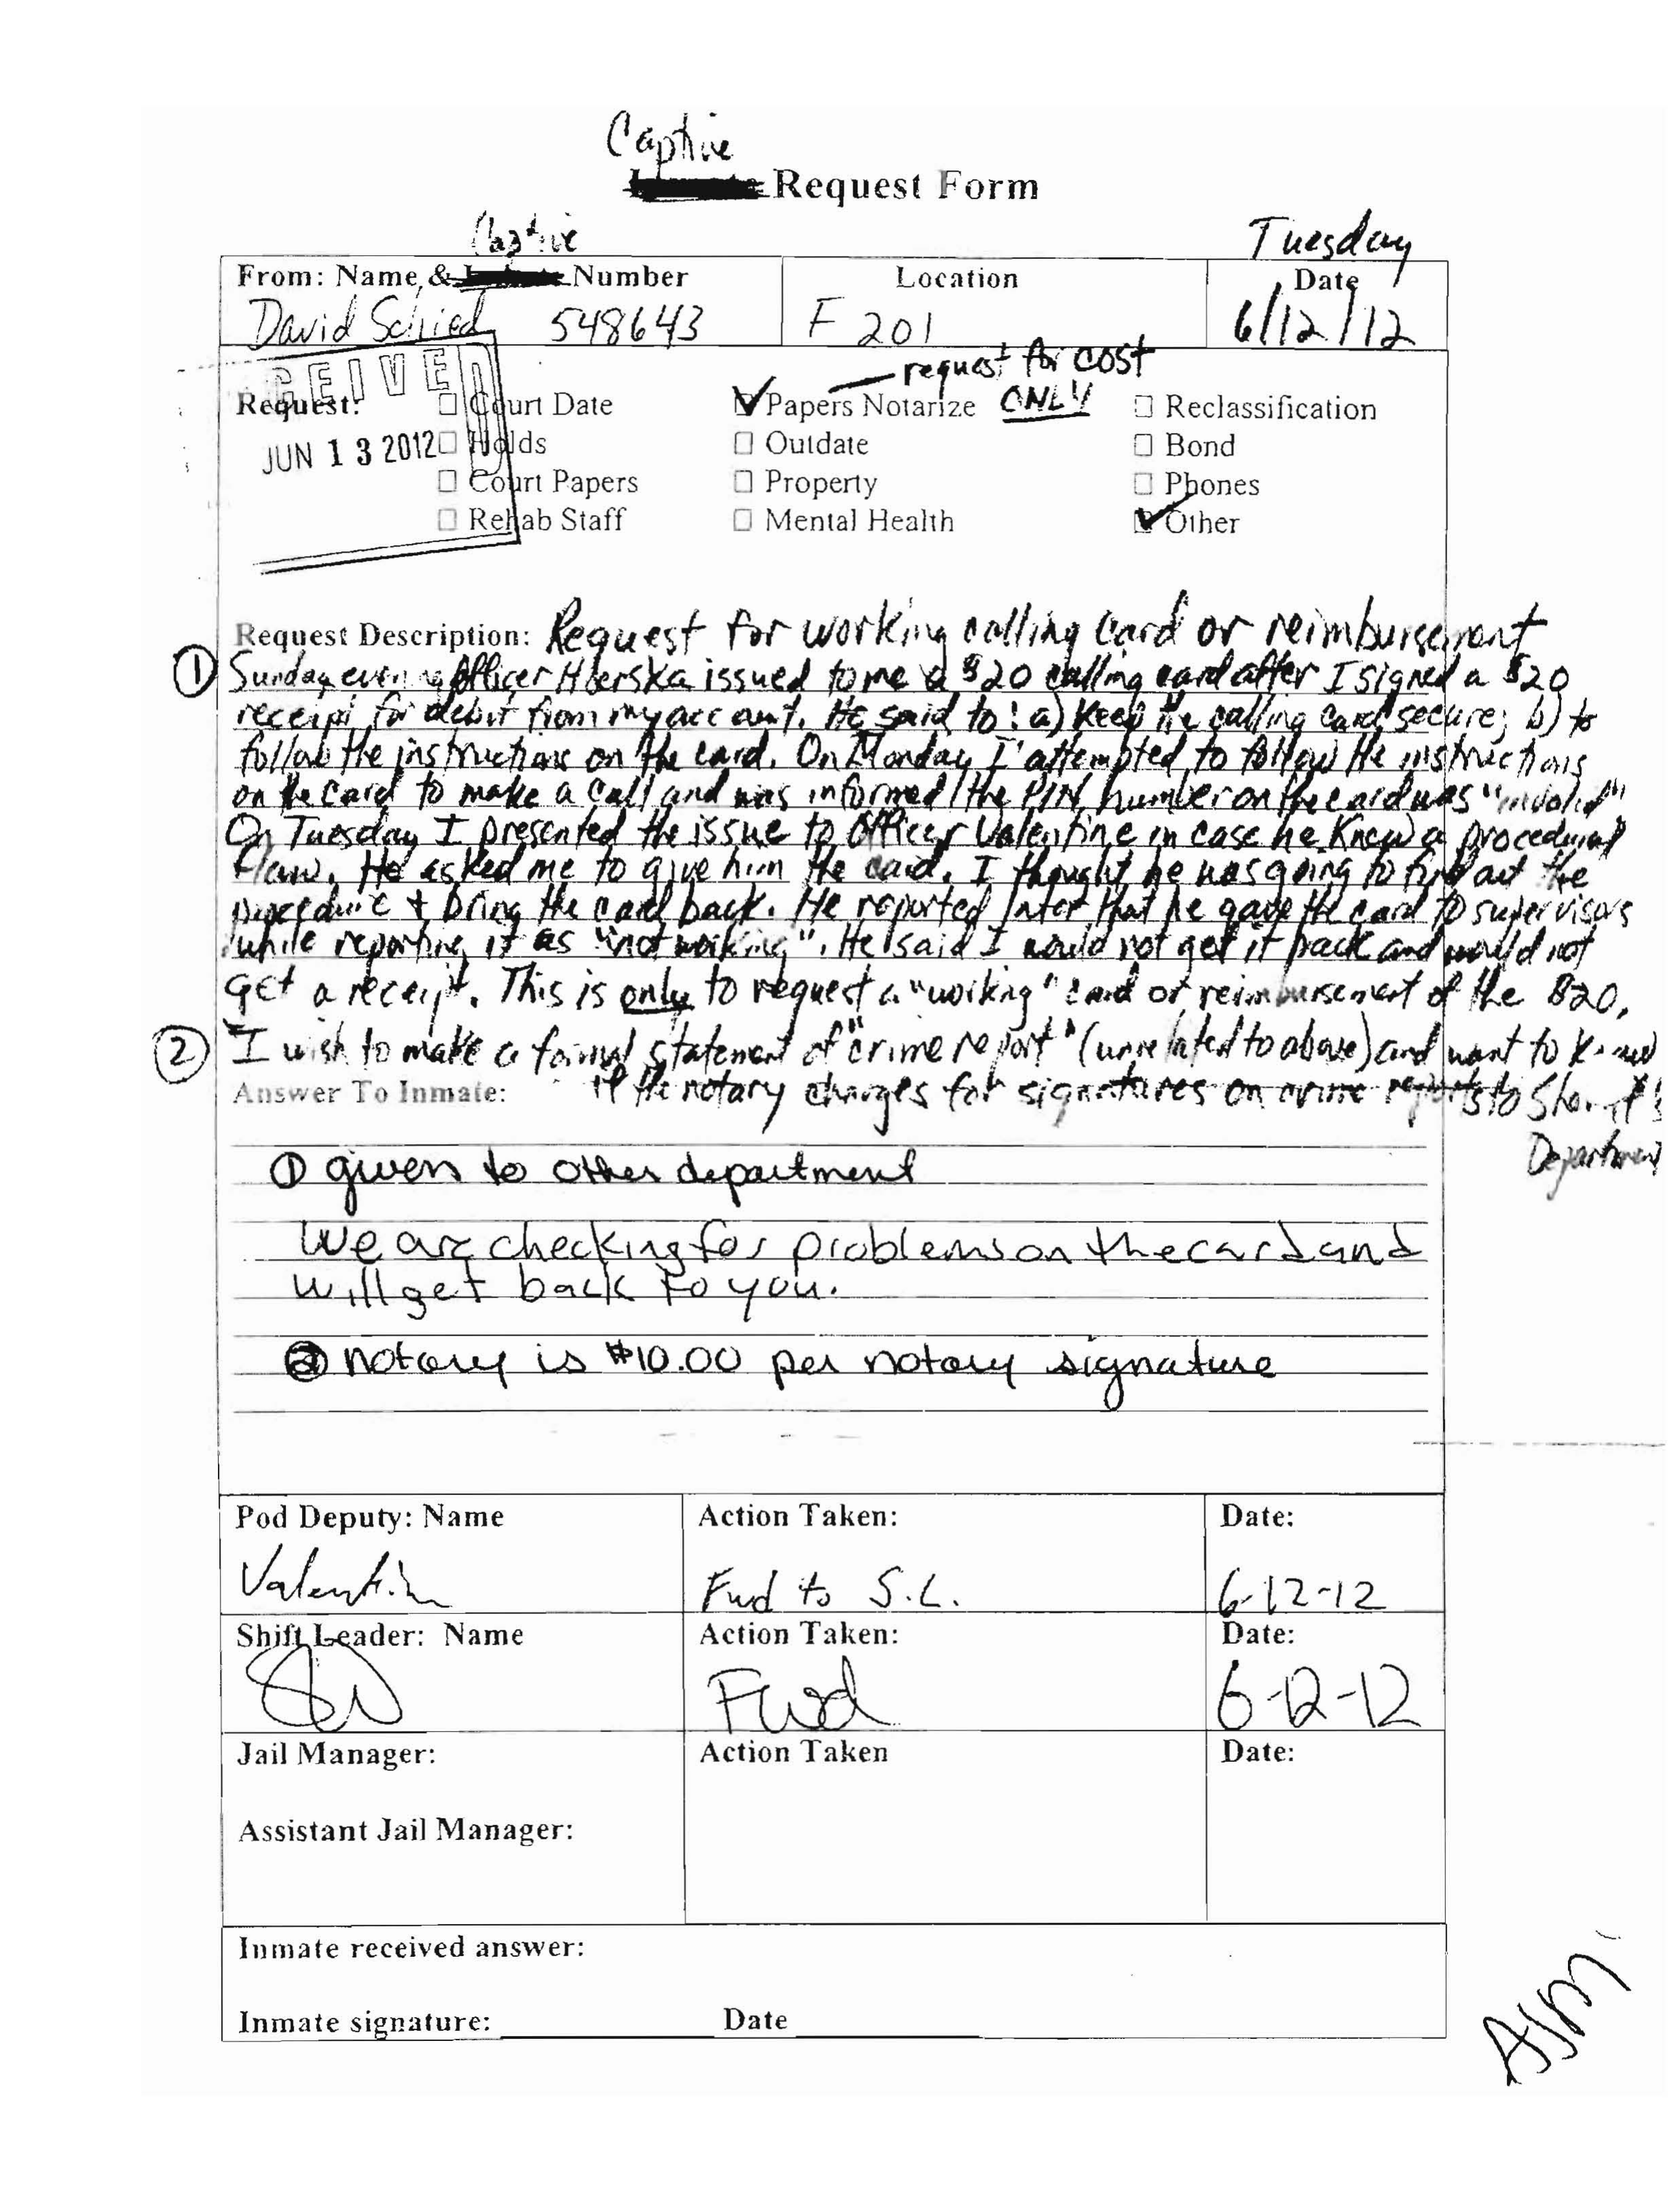 Captive
Request Form
Captive
Tuesday
From: Name & Number Location Date
David Schied 548643 F 201 6/12/12
CEIVED
JUN 13 2012
request for cost
ONLY
Request: Court Date Papers Notarize Reclassification
Holds Outdate Bond
Court Papers Property Phones
Rehab Staff Mental Health Other
Request Description: Request for working calling card or reimbursement
① Sunday evening Officer issued to me a $20 calling card after I signed a $20
receipt for debit from my account. He said to: a) keep the calling card secure; b) to
follow the instructions on the card. On Monday I attempted to follow the instructions
on the card to make a call and was informed the PIN number on the card was "invalid"
On Tuesday I presented the issue to Officer Valentine in case he knew a procedural
flaw. He asked me to give him the card. I thought he was going to find out the
procedure & bring the card back. He reported later that he gave the card to supervisors
while reporting it as "not working". He said I would not get it back and would not
get a receipt. This is only to request a "working" card or reimbursement of the $20.
② I wish to make a formal statement of "crime report" (unrelated to above) and want to know
Answer To Inmate: if the notary charges for signatures on crime reports to Sheriff's
Department
① given to other department
We are checking for problems on the card and
will get back to you.
② notary is $10.00 per notary signature
Pod Deputy: Name Action Taken: Date:
Valentin Fwd to S.L. 6-12-12
Shift Leader: Name Action Taken: Date:
Fwd 6-12-12
Jail Manager: Action Taken Date:
Assistant Jail Manager:
Inmate received answer:
Inmate signature: Date
AJM